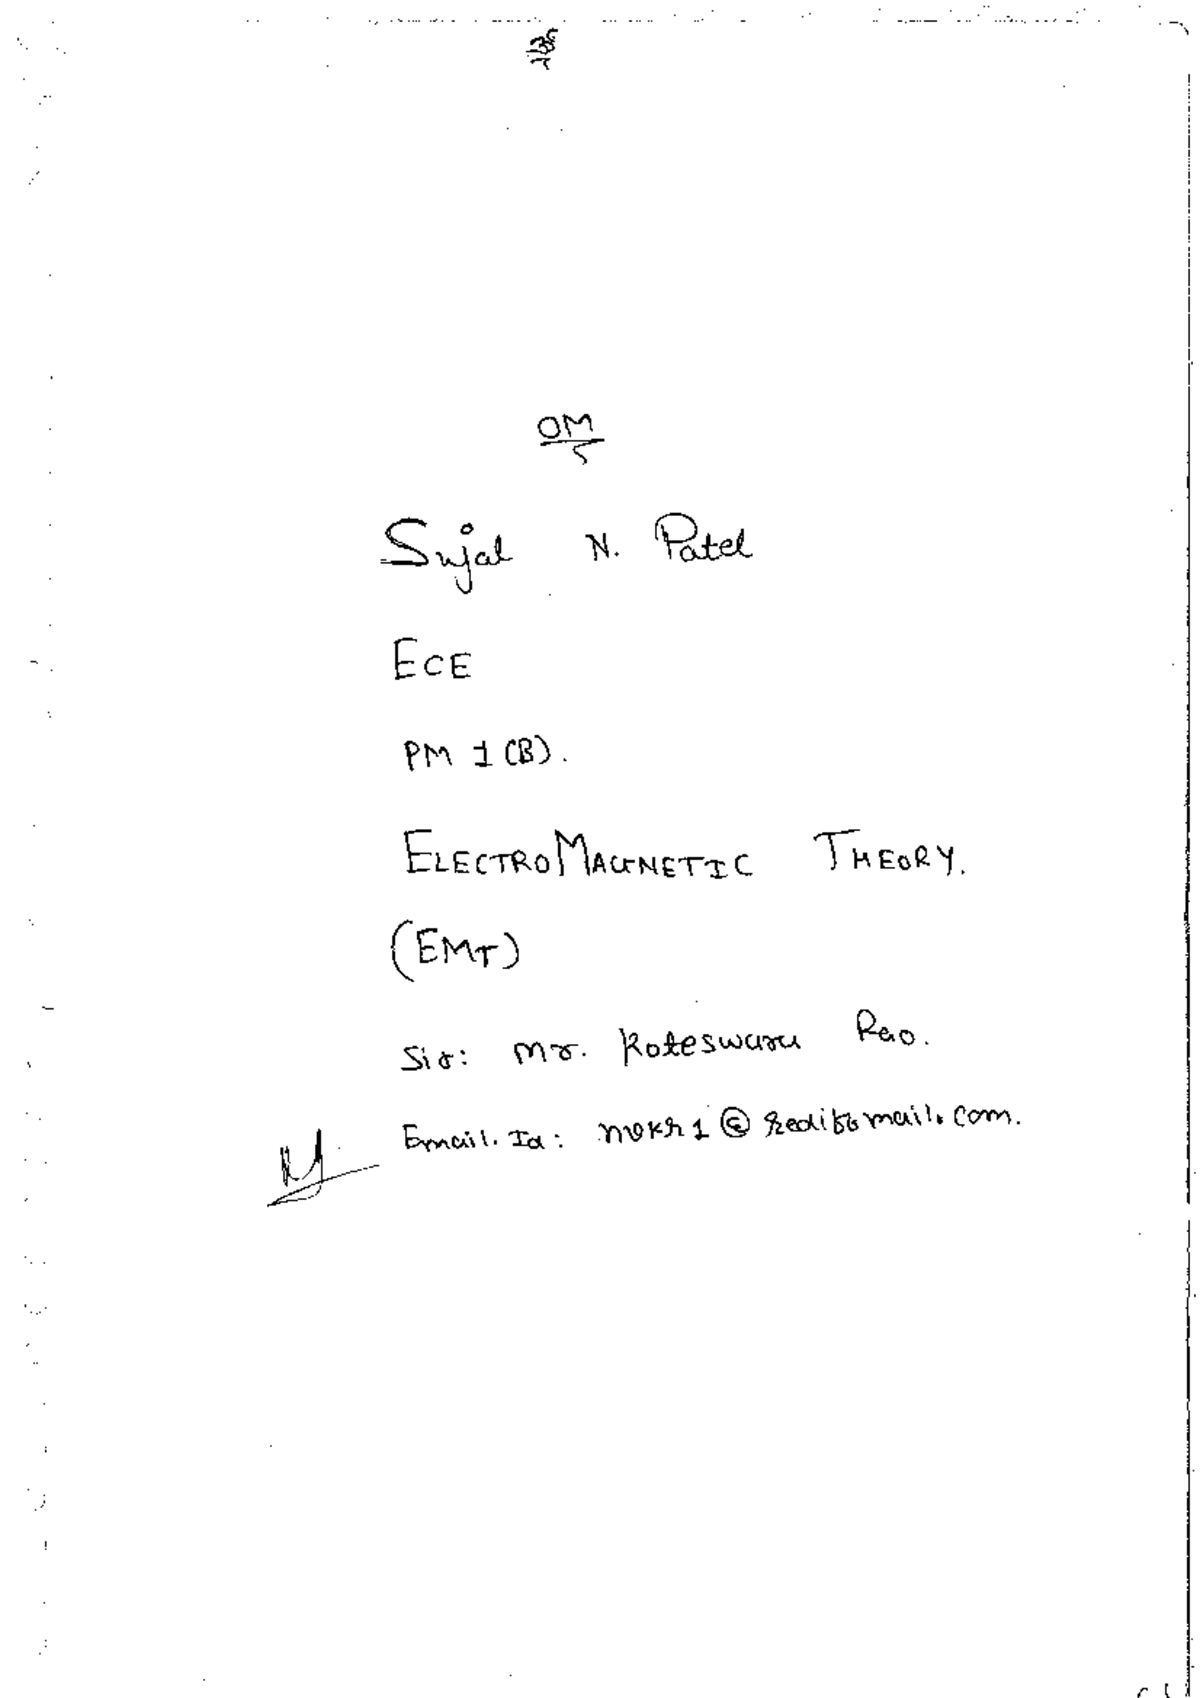 ૐ
OM
Sujal N. Patel
ECE
PM 1 (B).
ELECTROMAGNETIC THEORY.
(EMT)
Sir: Mr. Koteswara Rao.
Email. Id: